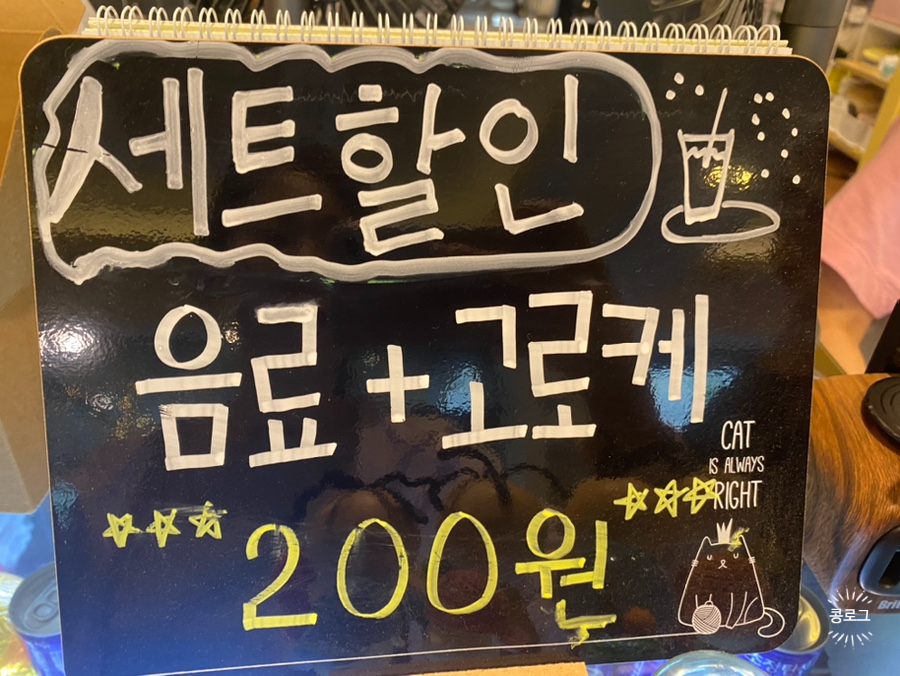 세트할인
음료+고로케
CAT
IS ALWAYS
RIGHT
200원
콩로그